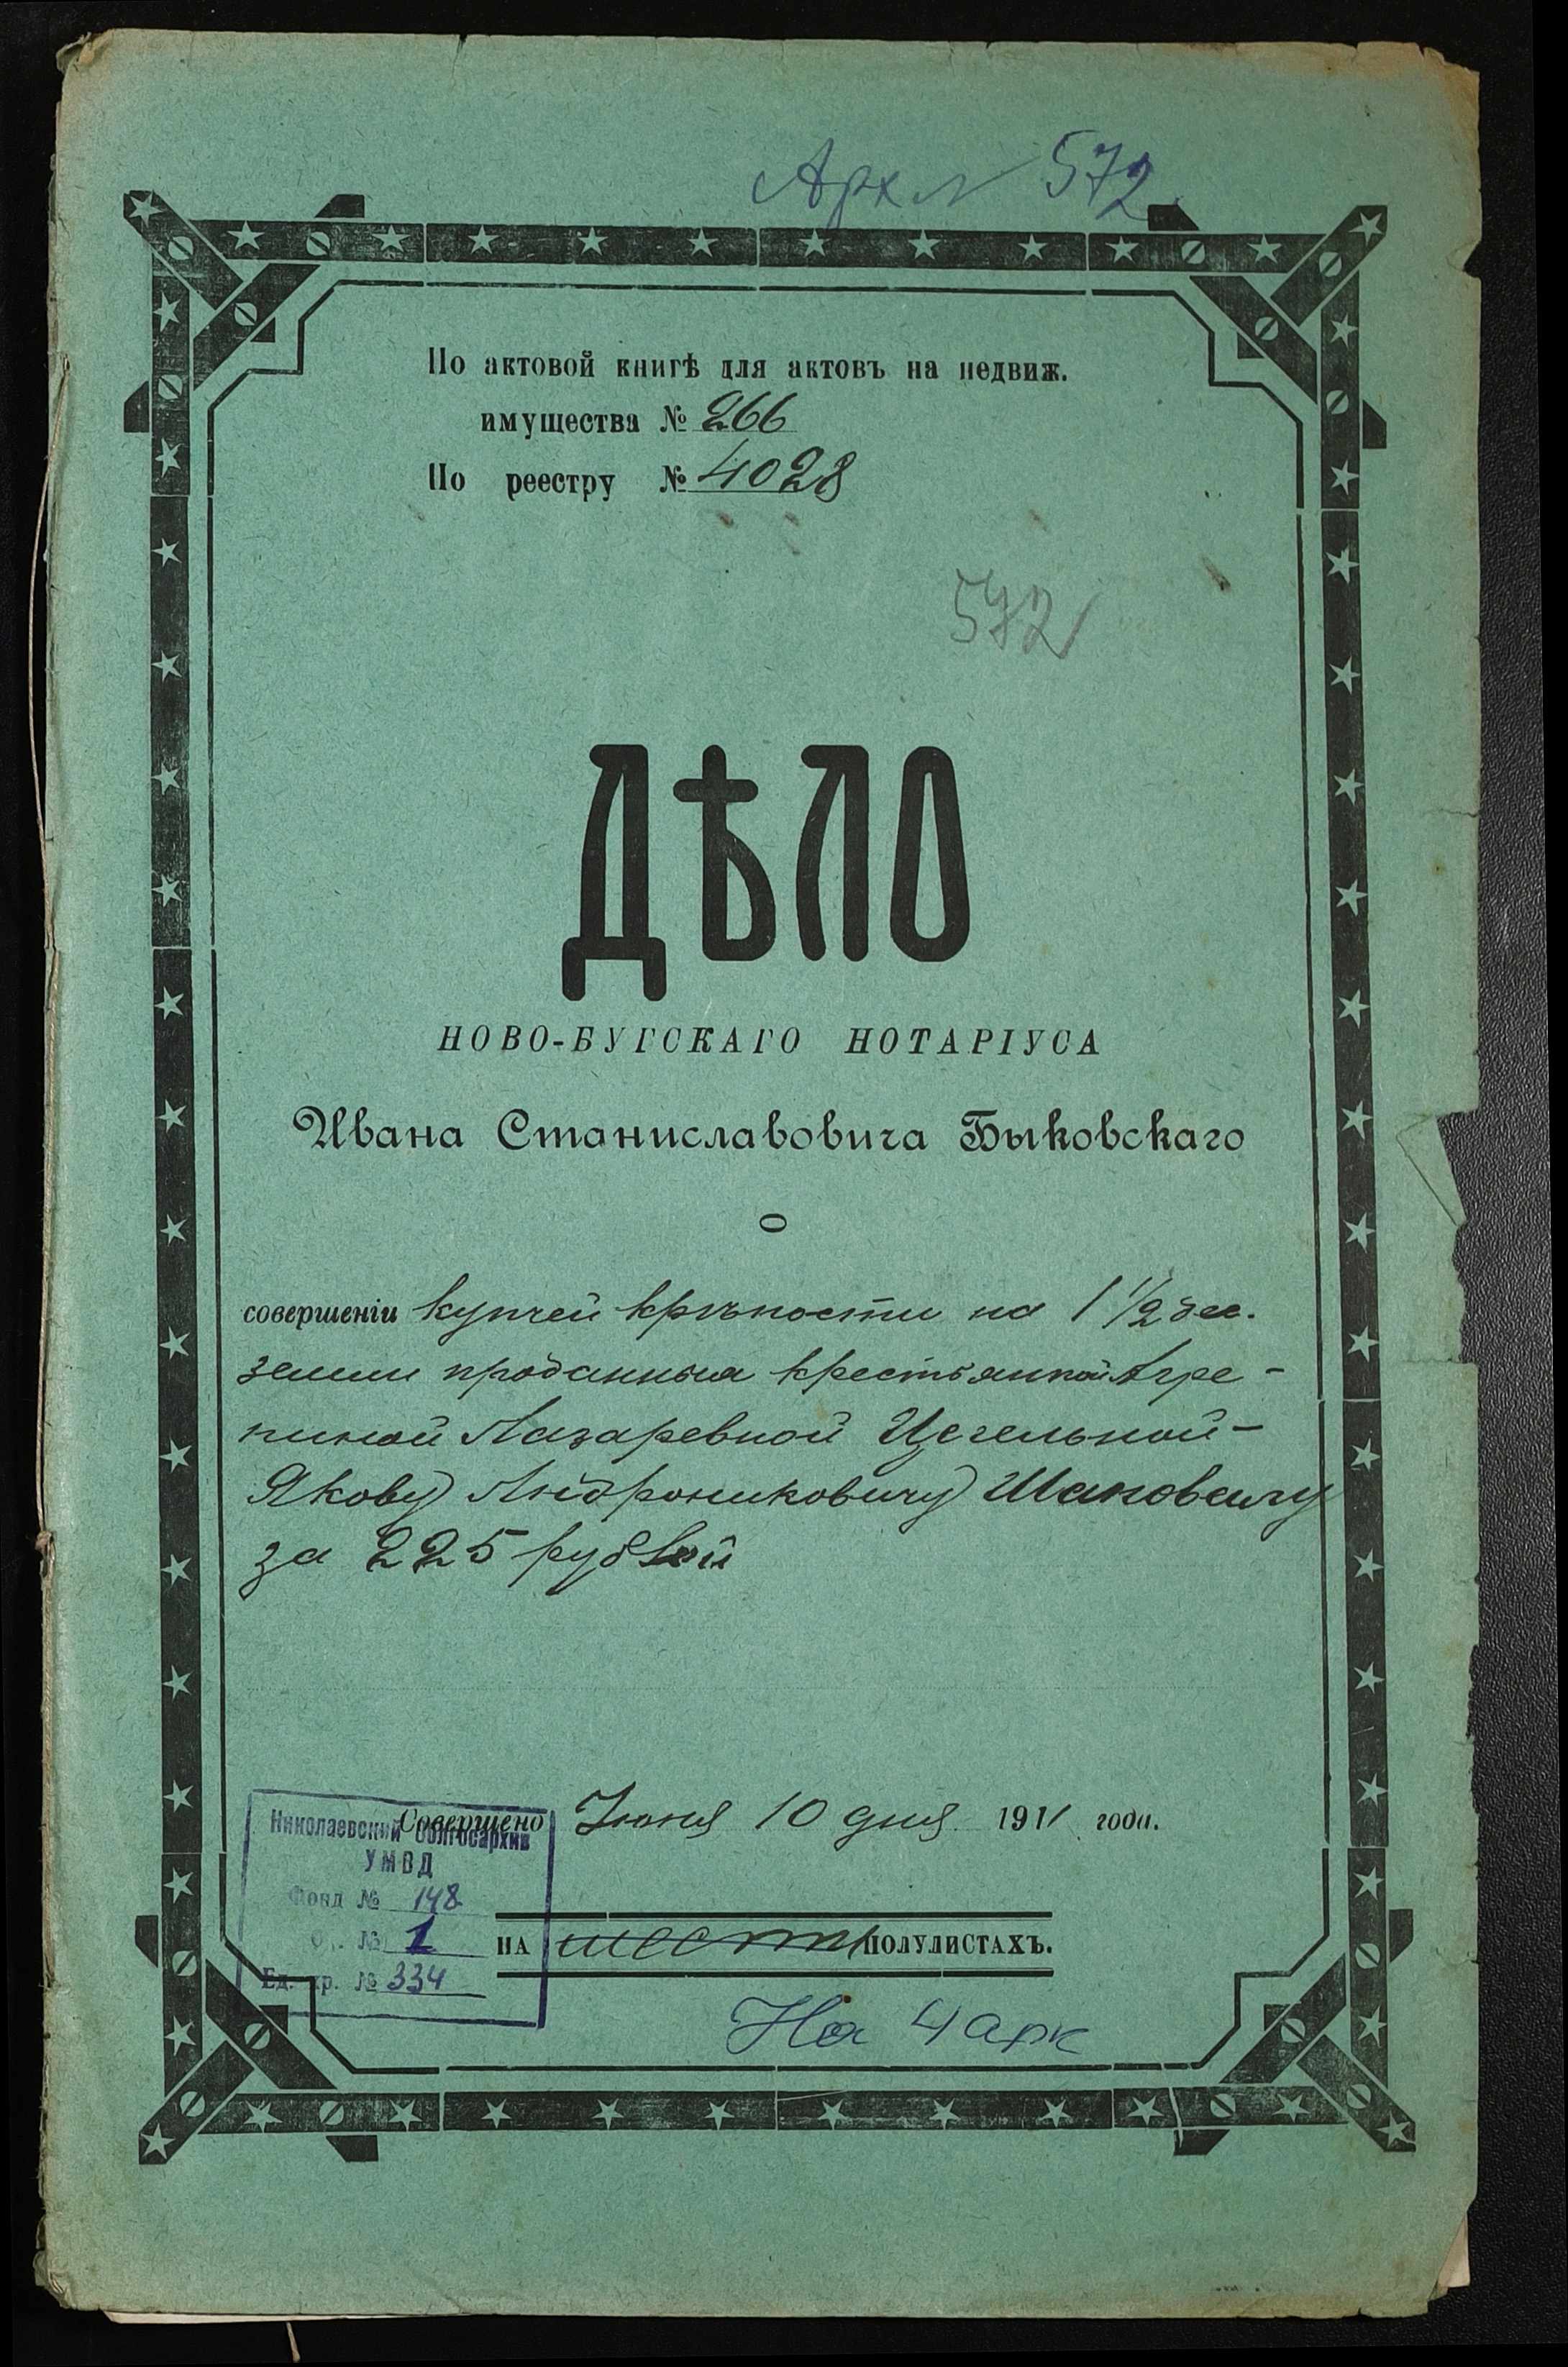 Арх № 572
По актовой книгѣ для актовъ на недвиж.
имущества № 266
По реестру № 4028
572
ДѢЛО
НОВО-БУГСКАГО НОТАРІУСА
Ивана Станиславовича Быковскаго
О
совершеніи купчей крѣпости на 1 1/2 дес.
земли проданныя крестьянкой Агре-
пиной Лазаревной Цегельной-
Якову Андрониковичу Шаповалу
за 225 рублей
Совершено Іюня 10 дня 1911 года.
Николаевский Облгосархив
УМВД
Фонд № 148
Оп. № 1
Ед. хр. № 334
НА шести ПОЛУЛИСТАХЪ.
На 4 арк